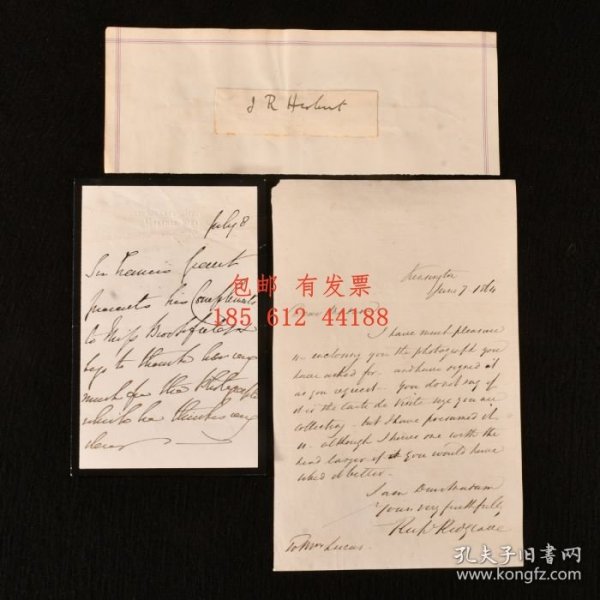 J R Herbert
July 8
Sir Francis Grant
presents his Compliments
to Miss Brookfield &
begs to thank her very
much for the Photographs
which he thinks very
包邮 有发票
185 612 44188
Kensington
June 7 1864
Dear Madam
I have much pleasure
in enclosing you the photograph you
have asked for and have signed it
as you request. You do not say if
it is the carte de visite size you are
collecting but I have presumed it
is although I have one with the
head larger if you would have
liked it better.
I am Dear Madam
Yours very faithfully
Richd Redgrave
To Mrs Lucas.
孔夫子旧书网
www.kongfz.com